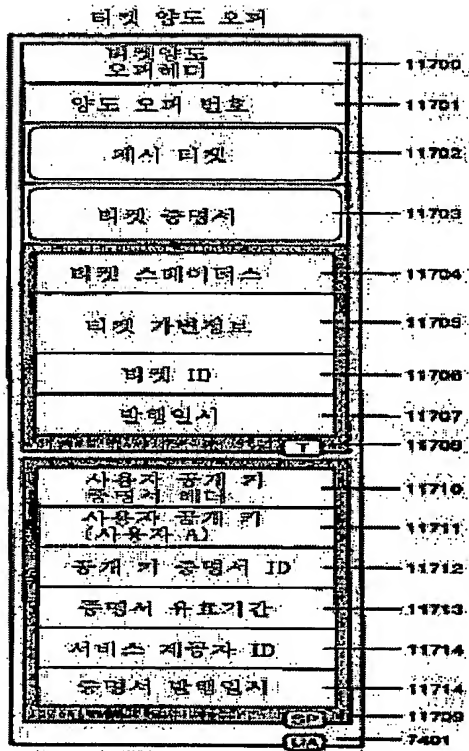 티켓 양도 오퍼
티켓양도
오퍼헤더
11700
양도 오퍼 번호
11701
제시 티켓
11702
티켓 증명서
11703
티켓 스테이터스
11704
티켓 가변정보
11705
티켓 ID
11706
발행일시
11707
T
11708
사용자 공개 키
증명서 헤더
11710
사용자 공개 키
(사용자 A)
11711
공개 키 증명서 ID
11712
증명서 유효기간
11713
서비스 제공자 ID
11714
증명서 발행일시
11714
SP
11709
UA
7401